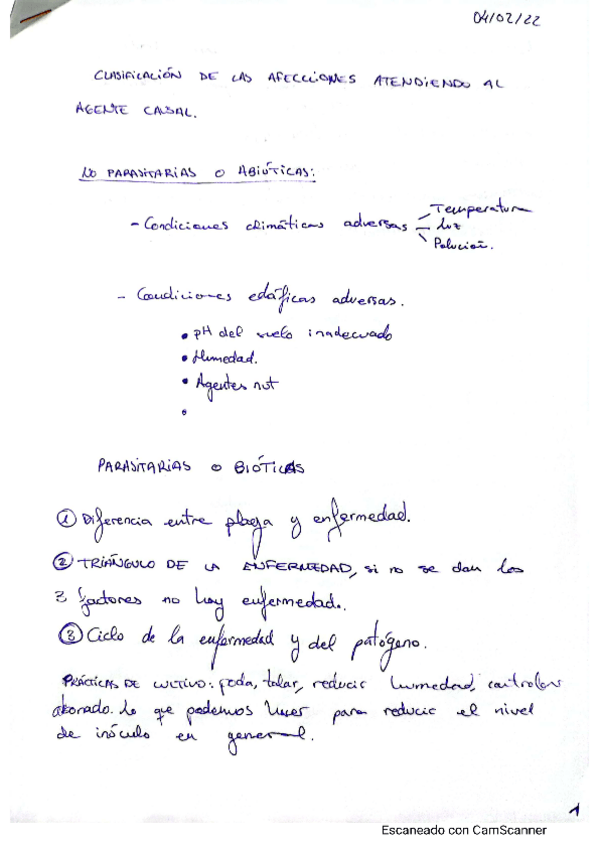 04/02/22
CLASIFICACIÓN DE LAS AFECCIONES ATENDIENDO AL
AGENTE CAUSAL.
NO PARASITARIAS O ABIÓTICAS:
- Condiciones climáticas adversas
Temperatura
Luz
Polución.
- Condiciones edáficas adversas.
• pH del suelo inadecuado
• Humedad.
• Agentes nut
•
PARASITARIAS O BIÓTICAS
① Diferencia entre plaga y enfermedad.
② TRIÁNGULO DE LA ENFERMEDAD, si no se dan los
3 factores no hay enfermedad.
③ Ciclo de la enfermedad y del patógeno.
PRÁCTICAS DE CULTIVO: poda, talar, reducir humedad, controlar
abonado. Lo que podemos hacer para reducir el nivel
de inóculo en general.
1
Escaneado con CamScanner